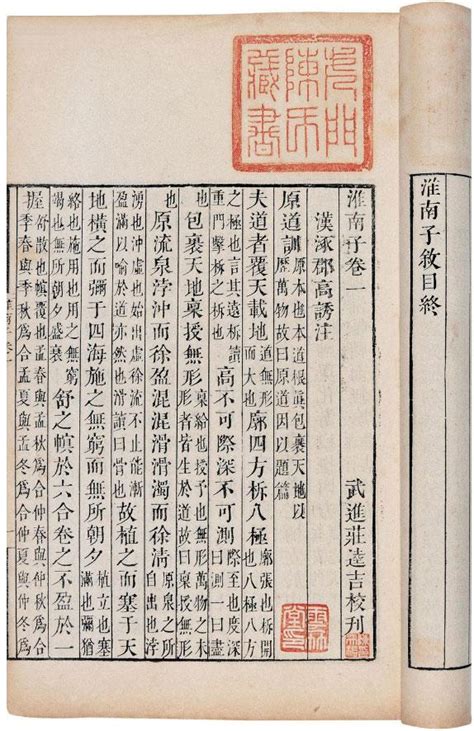 淮南子敘目終
門陳氏藏書
淮南子卷一
武進莊逵吉校刊
雲林堂印
漢涿郡高誘注
原道訓 原本也本道根真包裹天地以歷萬物故曰原道因以題篇
夫道者覆天載地 道無形而大也 廓四方柝八極 廓張也柝開也八極八方
之極也言其遠柝讀重門擊柝之柝也 高不可際深不可測 際至也度深曰測一曰盡
也 包裹天地稟授無形 稟給也授予也無形萬物之未形者皆生於道故曰稟授無形
也 原流泉浡沖而徐盈混混滑滑濁而徐清 原泉之所自出也浡
湧也沖虛也始出虛徐流不止能漸盈滿以喻於道亦然也滑讀曰骨也 故植之而塞于天
地橫之而彌于四海施之無窮而無所朝夕 植立也塞滿也彌猶
絡也施用也用之無窮竭也無所朝夕盛衰 舒之幎於六合卷之不盈於一
握 舒散也幎覆也孟春與孟秋為合仲春與仲秋為合季春與季秋為合孟夏與孟冬為合仲夏與仲冬為